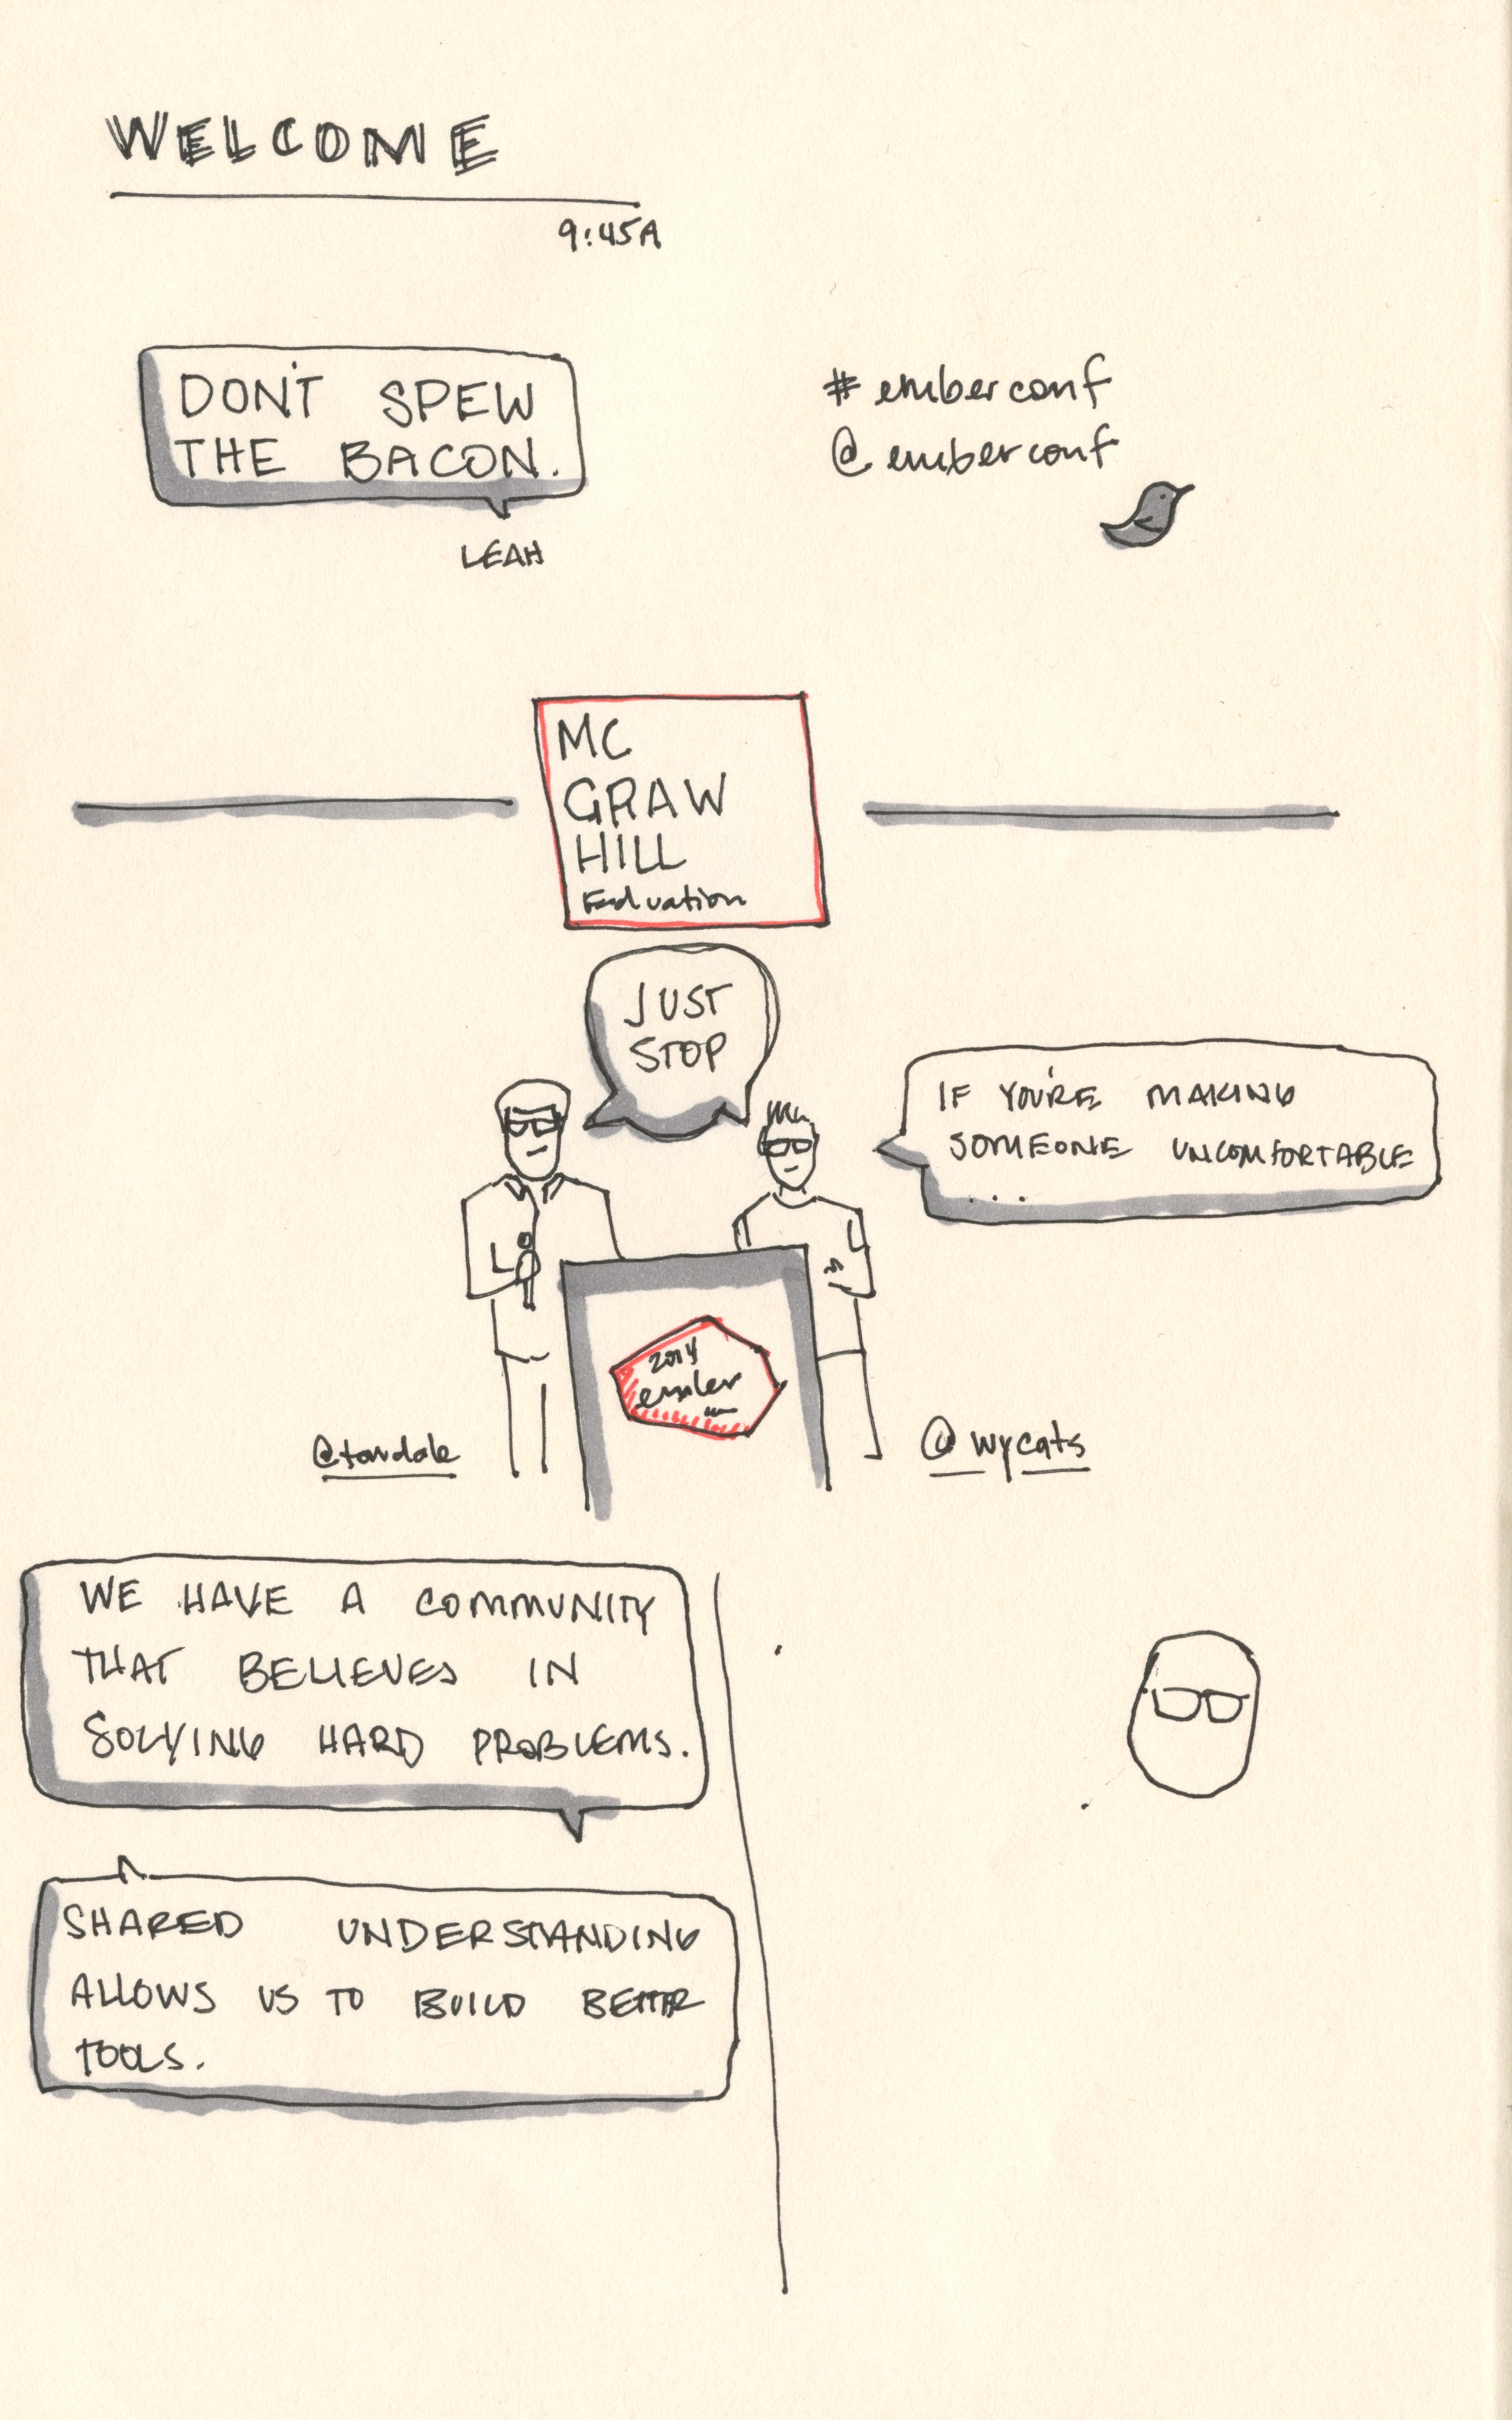 WELCOME
9:45A
DON'T SPEW
THE BACON.
LEAH
# emberconf
@emberconf
MC
GRAW
HILL
Eduvation
JUST
STOP
IF YOU'RE MAKING
SOMEONE UNCOMFORTABLE
...
2014
ember
@tomdale
@wycats
WE HAVE A COMMUNITY
THAT BELIEVES IN
SOLVING HARD PROBLEMS.
SHARED UNDERSTANDING
ALLOWS US TO BUILD BETTER
TOOLS.